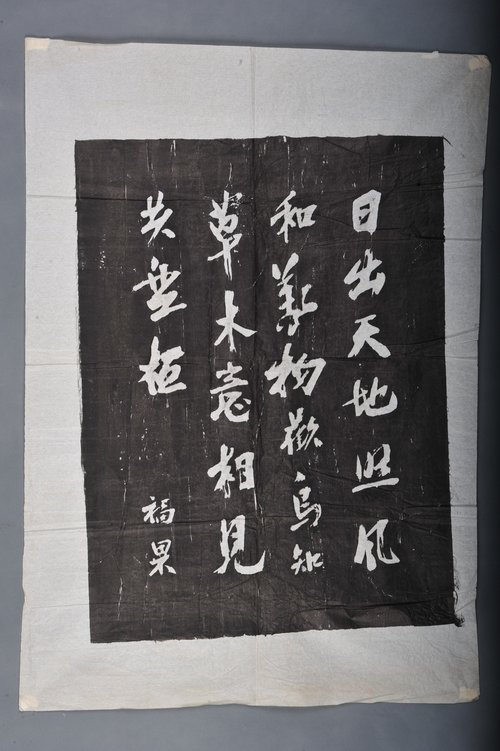 日出天地照风
和萬物歡鳥知
草木意相見
共無極
福果